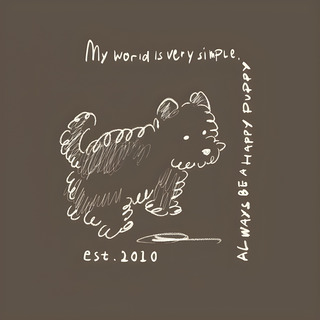 My world is very simple.
ALWAYS BE A HAPPY PUPPY
est.2010